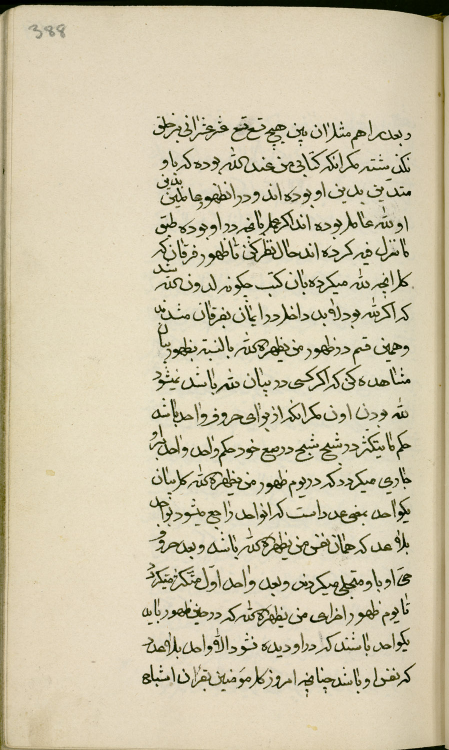 388
و بعد براهم مثل ان بین هیچ قمع قمع غرغرانی بر خلق
نکذشته مکر انکه کتابی من عند الله بوده که باو
متدین بدین او بوده اند و در انظهور عاملین
بدین
او لله عامل بوده اند اکر عمل مانجه در او بوده طبق
ما نزل فیه کرده اند حال نظر کن تا ظهور فرقان که
کل انچه لله میکرده بان کتب چکونه لدون الله شد
که اکر لله بود لابد داخل در ایمان بفرقان میشدند
و همین قسم در ظهور من یظهره الله بالنسبة بظهور بیان
مشاهده کن که اکر کسی در بیان لله باشد نمیشود
لله بودن اون مکر انکه از برای حروف واحد باشد
حکم ما یتکثر در شبح شبح در صقع خود حکم واحد واحد بر او
جاری میکردد که در یوم ظهور من یظهره الله کل بیان
یکواحد بیعدد است که انواحد راجع میشود بواحد
بلا عدد که همان نفس من یظهره الله باشد و بعد حروف
حی او باو متجلی میکردند و بعد واحد اول متکثر میکردد
تا یوم ظهور اخرای من یظهره الله که در حین ظهور باید
یکواحد باشند که در او دیده نشود الا واحد بلا عدد
که نفس او باشد چنانچه امروز کل مؤمنین بقران اشباه